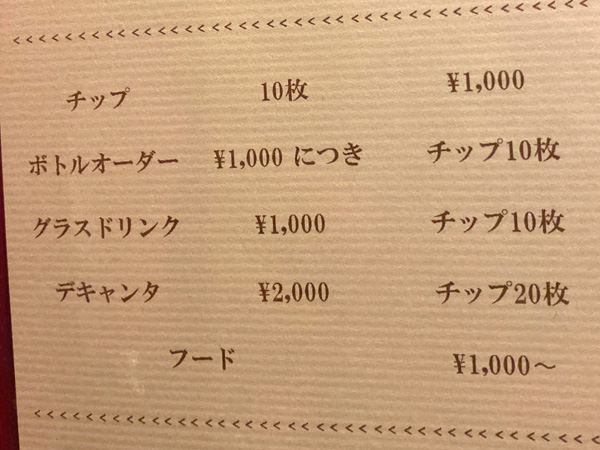 チップ 10枚 ¥1,000
ボトルオーダー ¥1,000 につき チップ10枚
グラスドリンク ¥1,000 チップ10枚
デキャンタ ¥2,000 チップ20枚
フード ¥1,000～